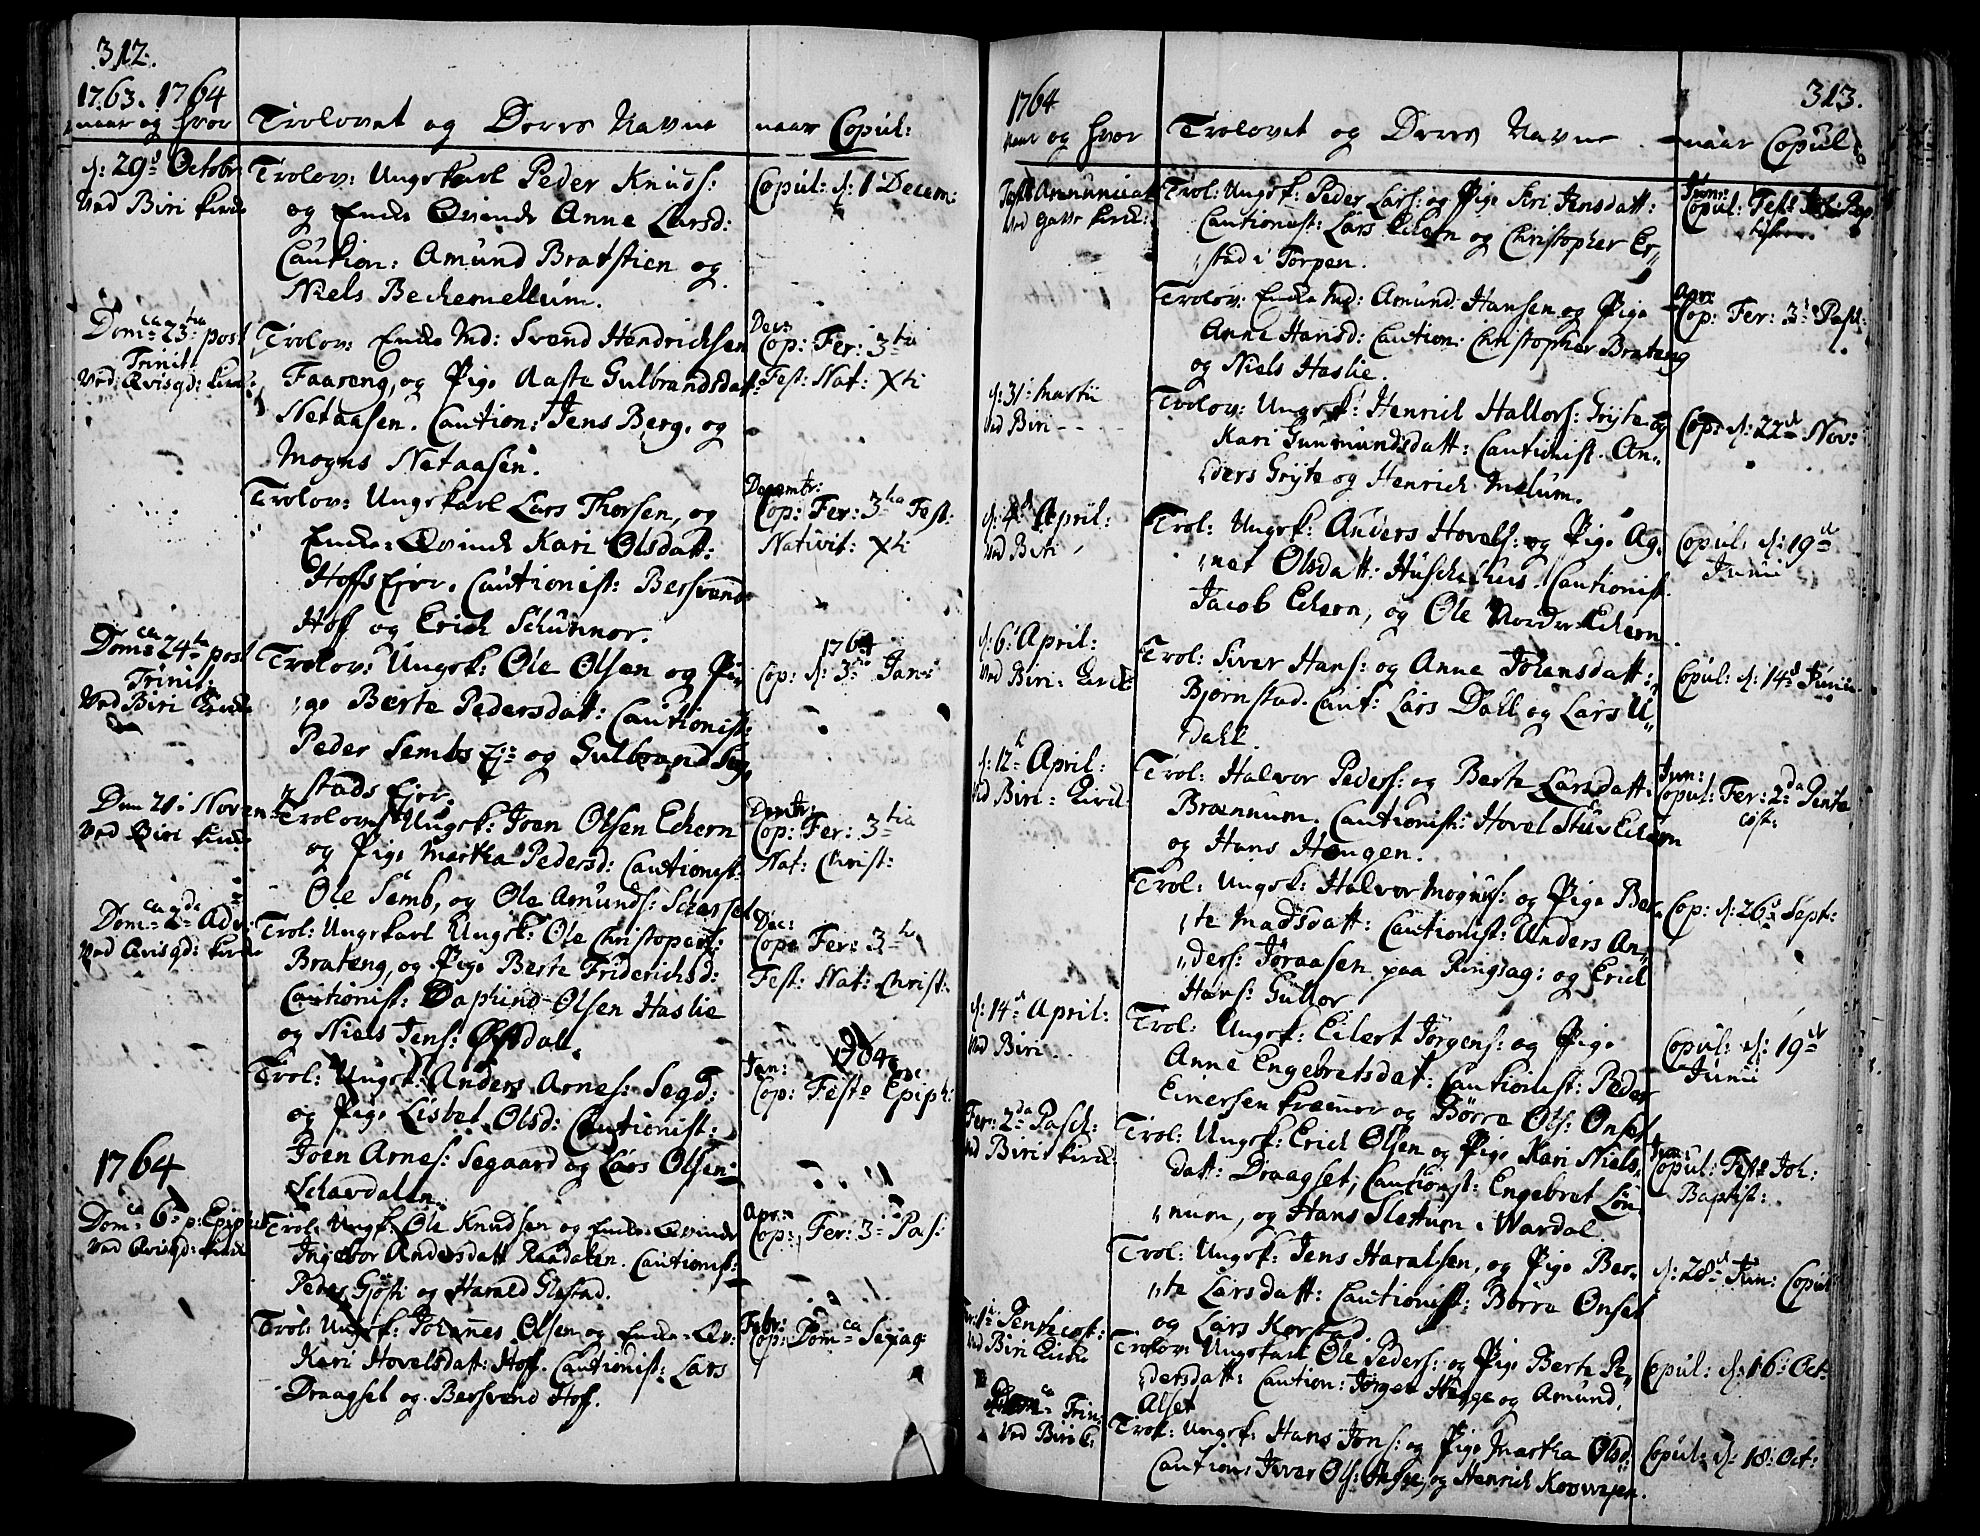 312.
1763. 1764
naar og hvor
Trolovet og Deres Navne
naar Copul:
d: 29d Octobr:
Ved Biri Kirche
Trolov: Ungekarl Peder Knuds:
og Encke Qvinde Anne Larsd:
Caution: Amund Bratstien og
Niels Beckemellum.
Copul: d: 1 Decem:
Domca 23tia post
Trinit:
Ved Qvisgd: Kirch:
Trolov: Encke Md: Svend Hendrichsen
Faareng, og Pige Aaste Gulbrandsdatt:
Netaasen. Caution: Jens Berg, og
Mogns Netaasen.
Dec:
Cop: Fer: 3tia
Fest: Nat: Xti
Trolov: Ungekarl Lars Thorsen, og
Encke-Qvinde Kari Olsdatt:
Hoffs Ejer. Cautionist: Bersvend
Hoff og Erich Schunnor.
Decembr:
Cop: Fer: 3tia Fest:
Nativit: Xti
Domca 24ta post
Trinit:
Ved Biri Kirche
Trolov: Ungk: Ole Olsen og Pi-
ge Berte Pedersdatt: Cautionist:
Peder Sembs Ej: og Gulbrand Seg-
stads Ejer.
1764
Cop: d: 3die Jan:
Den 21: Noven
Ved Biri Kirche
Trolov: Ungk: Joen Olsen Echern
og Pige Martha Pedersd: Cautionist:
Ole Semb, og Ole Amunds:
Decmbr:
Cop: Fer: 3tia
Nat: Christ:
Domca 2da Adv:
Ved Qvisgd: Kirche
Trol: Ungekarl Ungk: Ole Christophers:
Brateng, og Pige Berte Friderichsd:
Cautionist: Daphind Olsen Haslie
og Niels Jens: Østdal.
Dec:
Cop: Fer: 3tia
Fest: Nat: Christ:
Trol: Ungk: Anders Arnes: Segd:
og Pige Lisbet Olsd: Cautionist:
Joen Arnes: Segaard og Lars Olsen
Schavdalen.
1764
Jan:
Cop: Festo Epiph:
1764
Domca 6ta p: Epiph:
Ved Qvisgd: Kirche
Trol: Ungk: Ole Knudsen og Encke Qvinde
Ingebor Andersdatt Raadalen. Cautionist:
Peder Gjøsti og Harald Glestad.
Apr:
Cop: Fer: 3: Pas:
Trol: Ungk: Johannes Olsen og Encke-Qv:
Kari Hovelsdatt: Hoff. Cautionist: Lars
Draagset og Bersvend Hoff.
Febr:
Cop: Domca Sexag:
1764
313.
naar og hvor
Trolovet og Deres Navne
naar Copul:
Festo Annunciat:
Ved Kirche:
Trol: Ungk: Peder Lars: og Pige Siri Jensdatt:
Cautionist: Lars Echern og Christopher Er-
stad i Torpen.
Jun:
Copul: Festo Joh: Bap-
tistæ
Trolov: Encke Md: Amund Hansen og Pige
Anne Hansd: Caution: Christopher Brateng
og Niels Haslie.
Apr:
Cop: Fer: 3: Pasch:
d: 31: Martii
Ved Biri
Trolov: Ungk: Henrich Hallors: Gryte og
Kari Gunmundsdatt: Cautionist. An-
ders Gryte og Henrich Melum.
Cop: d: 22d Nov:
d: 4d April:
Ved Biri
Trol: Ungk: Anders Hovels: og Pige Ag-
net Olsdatt: Huschelhus. Cautionist.
Jacob Echern, og Ole Nordre Echern.
Copul: d: 19d
Junii
d: 6: April:
Ved Biri: Kirch:
Trol: Siver Hans: og Anne Johansdatt:
Bjørnstad. Caut: Lars Dahl og Lars U-
dahl.
Copul: d: 14d Junii
d: 12d April:
Ved Biri: Kirch:
Trol: Halvor Peders: og Berte Larsdatt:
Brænnum. Cautionist: Hovel Stuv Echern
og Hans Haugen.
Jun:
Copul: Fer: 2da Pente
cost:
Trol: Ungk: Halvor Mogns: og Pige Ber-
te Madsdatt: Cautionist: Anders An-
ders: Jøraasen paa Ringsag: og Erich
Hans: Gullor
Cop: d: 26d Sept:
d: 14d April:
Ved Biri.
Trol: Ungk: Eilert Jørgens: og Pige
Anne Engebretsdat: Cautionist: Peder
Einersen Kræmer og Børre Ols: Onset
Copul: d: 19d
Junii
Fer: 2da Pasch:
Ved Biri Kirch:
Trol: Ungk: Erich Olsen og Pige Kari Niels-
datt: Draagset; Cautionist: Engebret Løn-
num, og Hans Slettum i Wardal.
Jun:
Copul: Festo Joh:
Baptist:
Trol: Ungk: Jens Haralsen, og Pige Ber-
te Larsdatt: Cautionist: Børre Onset
og Lars Korstad.
d: 28d Jun: Copul
Fer: 1: Pentecost:
Ved Biri Kirche
Trolov: Ungekarl Ole Peders: og Pige Berte Pe-
dersdatt: Caution: Jørgen Hegge og Amund
Alset
Copul: d: 16: Oct:
Trin:
Ved Biri K:
Trol: Ungk: Hans Jons: og Pige Martha Olsd:
Caution: Iver Ols: og Henrich
Copul: d: 18: Oct: